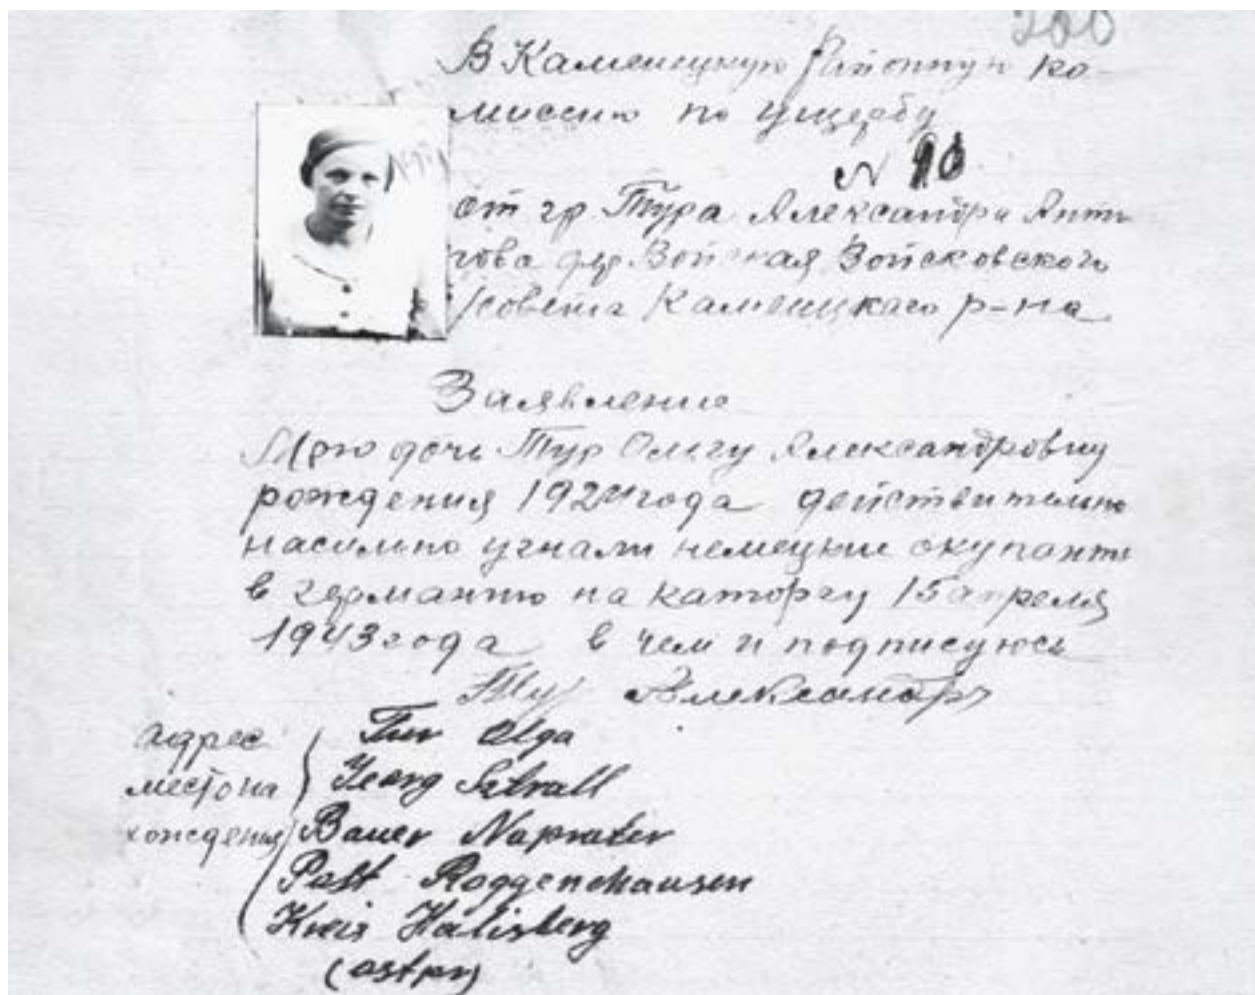 200
В Каменецкую Районную ко-
миссию по ущербу
N
от гр Тура Александра Анти
пова дер Войская Войсковского
с/совета Каменецкаго р-на
Заявление
Мою дочь Тур Ольгу Александровну
рождения 1924 года действительно
насильно угнали немецкие окупанты
в германию на каторгу 15 апреля
1943 года в чем и подписуюсь
Тур Александр
адрес
местона
хождения
Tur Olga
Georg
Bauer Naprater
Post Roggenhausen
Kreis
(ostpr)